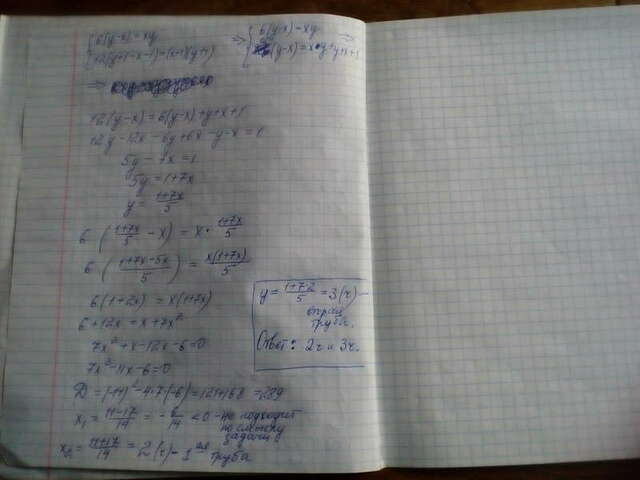 { 6(y-x)=xy
12(y+1-x-1)=(x+1)(y+1)
⇒ { 6(y-x)=xy ⇒
(y-x)=x·y+y+x+1
⇒
12(y-x)=6(y-x)+y+x+1
12y-12x-6y+6x-y-x=1
5y-7x=1
5y=1+7x
y=\frac{1+7x}{5}
6(\frac{1+7x}{5}-x)=x·\frac{1+7x}{5}
6(\frac{1+7x-5x}{5})=\frac{x(1+7x)}{5}
6(1+2x)=x(1+7x)
6+12x=x+7x²
7x²+x-12x-6=0
7x²-11x-6=0
D=(-11)²-4·7·(-6)=121+168=289
x₁=\frac{11-17}{14}=-\frac{6}{14}<0-не подходит
по смыслу
задачи
x₂=\frac{11+17}{14}=2(ч)-1
труба
y=\frac{1+7·2}{5}=3(ч)-
труба.
Ответ: 2ч и 3ч.